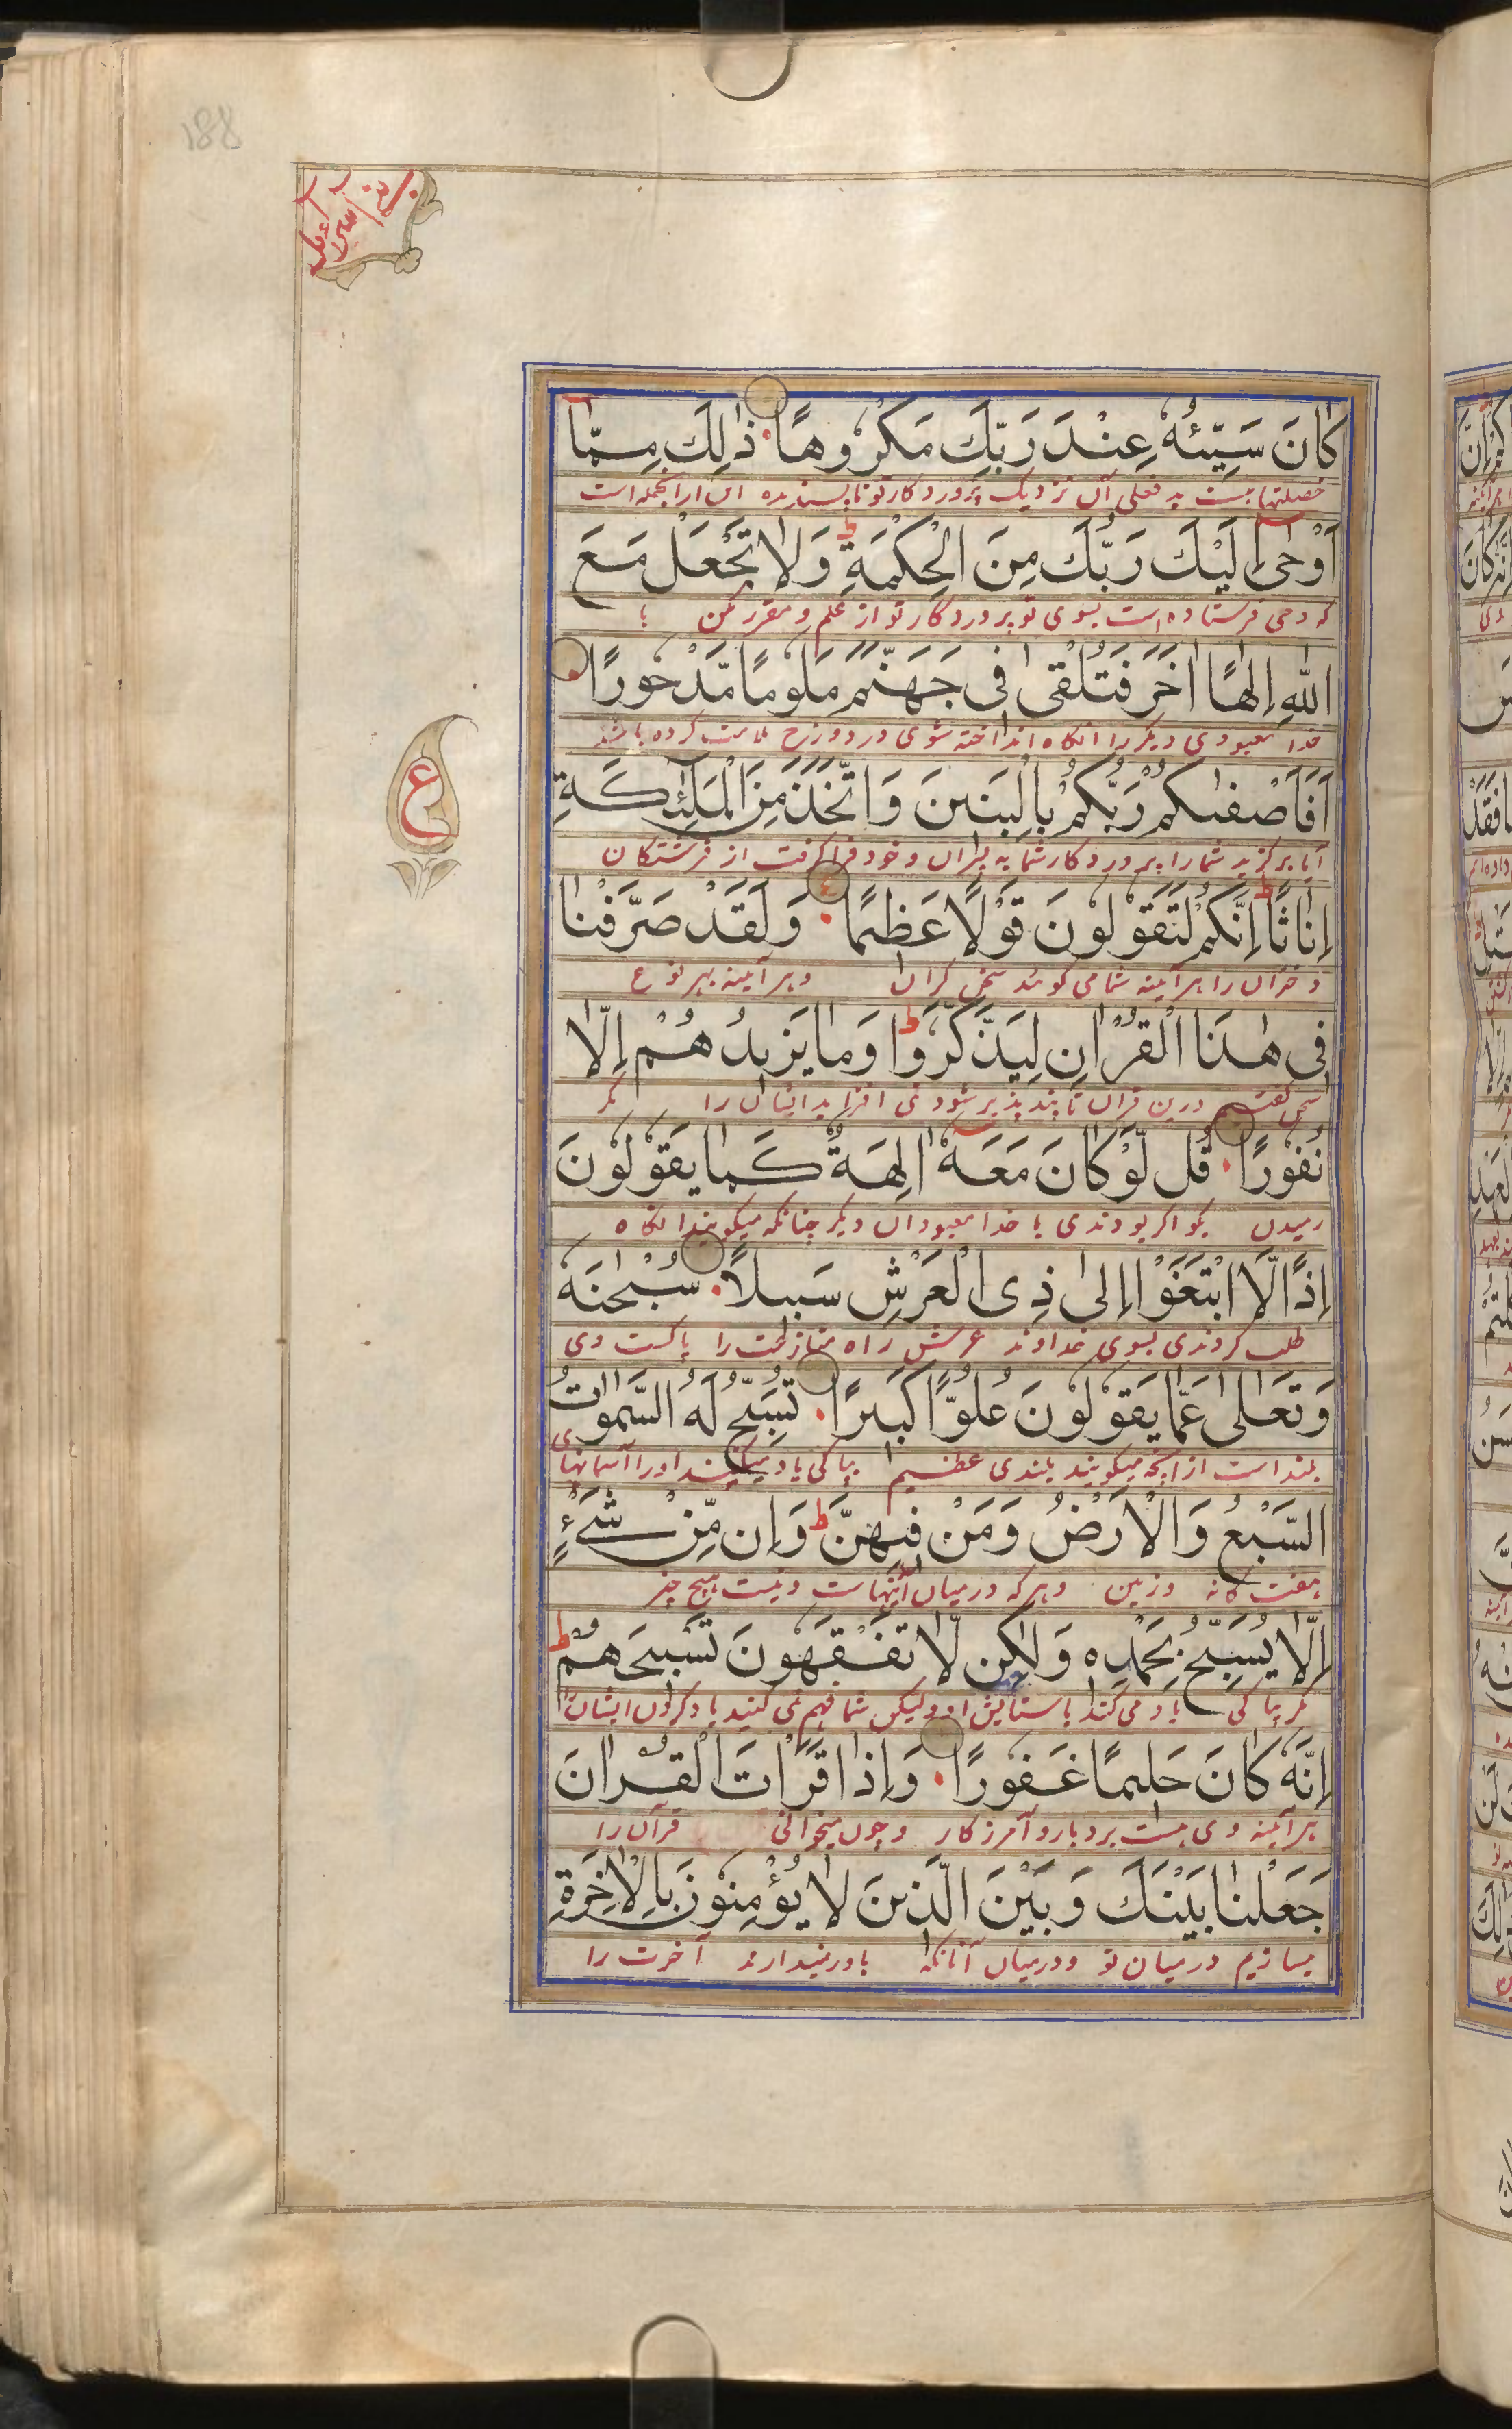 188
بنی اسرائیل
كَانَ سَيِّئُهٗ عِنْدَ رَبِّكَ مَكْرُوهًا ذٰلِكَ مِمَّا
خصلتها هست بد فعلی آن نزدیک پروردکار تو ناپسندیده این از انجمله است
اَوْحٰى اِلَيْكَ رَبُّكَ مِنَ الْحِكْمَةِ ط وَلَا تَجْعَلْ مَعَ
که وحی فرستاده است بسوی تو پروردکار تو از علم و مقرر مکن با
اللّٰهِ اِلٰهًا اٰخَرَ فَتُلْقٰى فِى جَهَنَّمَ مَلُومًا مَّدْحُورًا
خدا معبودی دیکر را انکاه انداخته شوی در دوزخ ملامت کرده باشند
اَفَاَصْفٰىكُمْ رَبُّكُمْ بِالْبَنِينَ وَاتَّخَذَ مِنَ الْمَلٰٓئِكَةِ
آیا برکزید شما را پروردکار شما به پسران و خود فرا کرفت از فرشتکان
ع
اِنَاثًا ط اِنَّكُمْ لَتَقُولُونَ قَوْلًا عَظِيمًا ۴ وَلَقَدْ صَرَّفْنَا
دختران را هر آینه شما می کوئید سخن کران و هر آینه بهر نوع
فِى هٰذَا الْقُرْاٰنِ لِيَذَّكَّرُوا ط وَمَا يَزِيدُهُمْ اِلَّا
سخن کفتیم درین قران تا پند پذیر شود نمی افزاید ایشان را مکر
نُفُورًا قُل لَّوْ كَانَ مَعَهٗٓ اٰلِهَةٌ كَمَا يَقُولُونَ
رمیدن بکو اکر بودندی با خدا معبودان دیکر چنانکه میکویند انکاه
اِذًا لَّابْتَغَوْا اِلٰى ذِى الْعَرْشِ سَبِيلًا سُبْحٰنَهٗ
طلب کردندی بسوی خداوند عرش راه منازعت را پاکست وی
وَتَعَالٰى عَمَّا يَقُولُونَ عُلُوًّا كَبِيرًا تُسَبِّحُ لَهُ السَّمٰوَاتُ
بلند است از انچه میکویند بلندی عظیم بپاکی یاد میکنند او را آسمانهای
السَّبْعُ وَالْاَرْضُ وَمَنْ فِيهِنَّ ط وَاِن مِّنْ شَىْءٍ
هفت کانه و زمین و هر که در میان اینهاست و نیست هیچ چیز
اِلَّا يُسَبِّحُ بِحَمْدِهٖ وَلٰكِن لَّا تَفْقَهُونَ تَسْبِيحَهُمْ ط
مکر بپاکی یاد می کند با ستایش او ولیکن شما فهم نمی کنید یاد کردن ایشان را
اِنَّهٗ كَانَ حَلِيمًا غَفُورًا وَاِذَا قَرَاْتَ الْقُرْاٰنَ
هر آینه وی هست بردبار و آمرزکار و چون میخوانی قرآن را
جَعَلْنَا بَيْنَكَ وَبَيْنَ الَّذِينَ لَا يُؤْمِنُونَ بِالْاٰخِرَةِ
میسازیم درمیان تو و درمیان آنانکه باور نمیدارند آخرت را